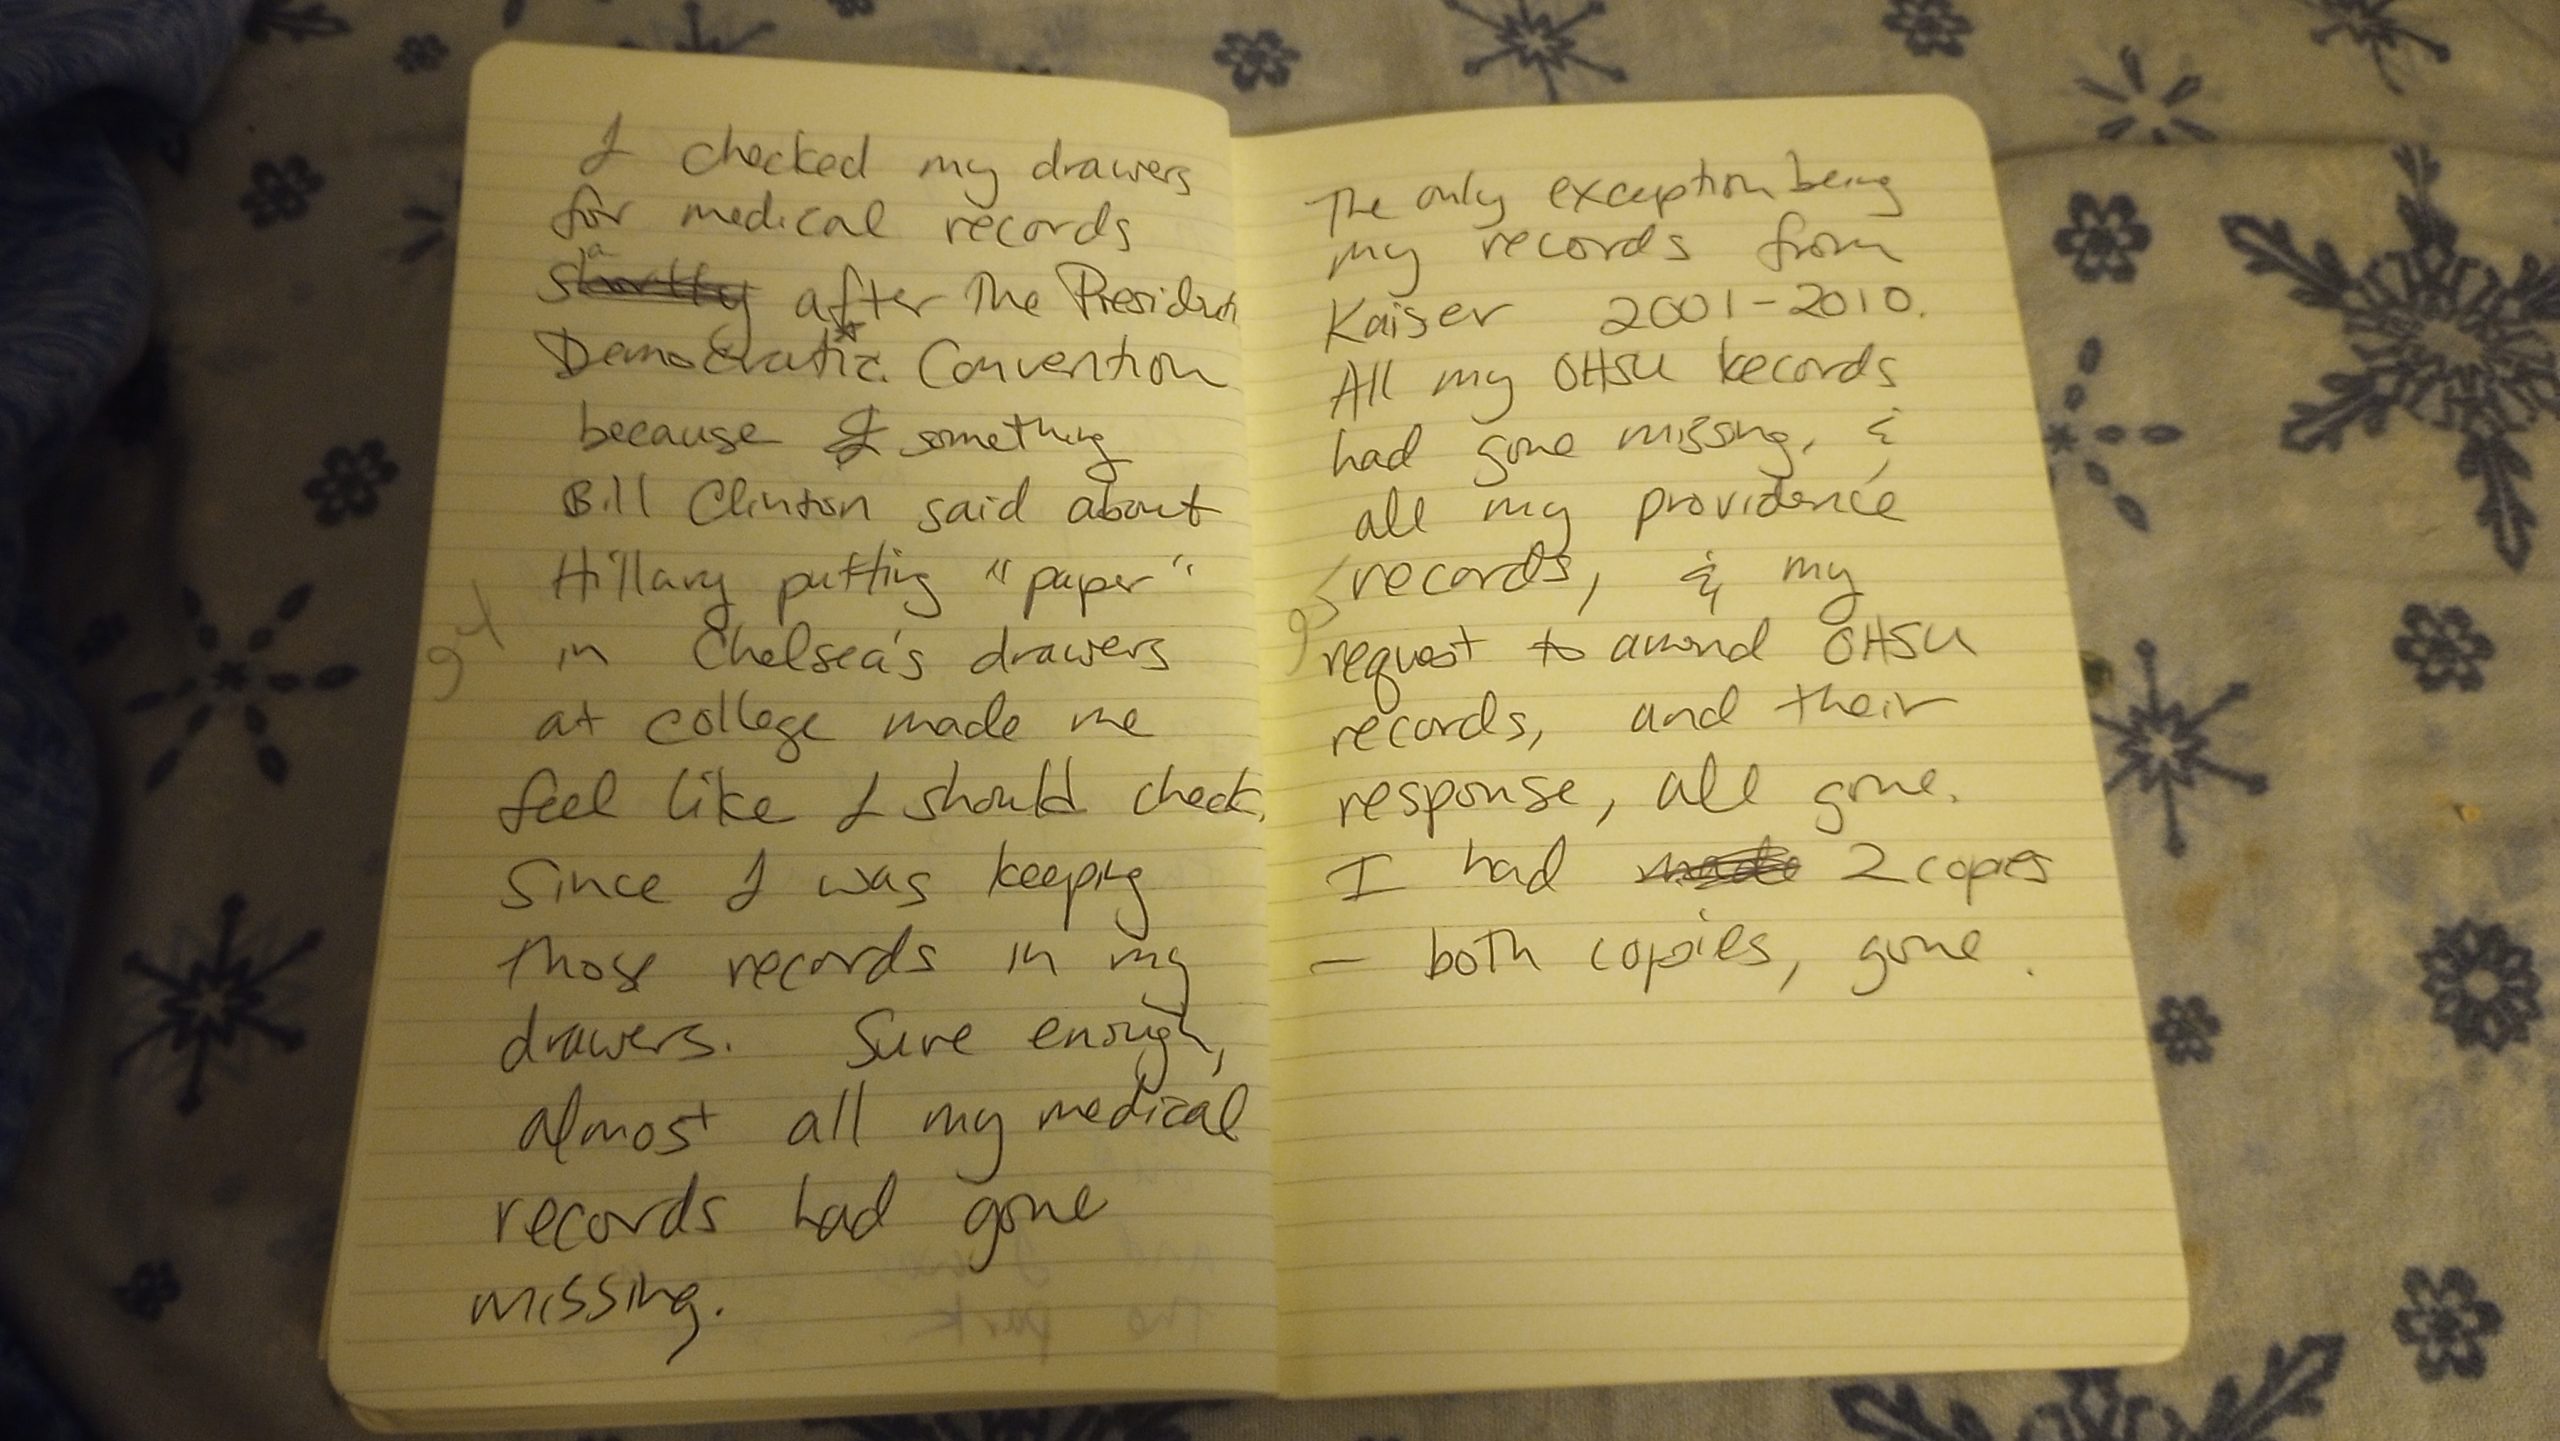 I checked my drawers
for medical records
after the President
Democratic Convention
because something
Bill Clinton said about
Hillary putting "paper"
in Chelsea's drawers
at college made me
feel like I should check,
since I was keeping
those records in my
drawers. Sure enough,
almost all my medical
records had gone
missing.
94
The only exception being
my records from
Kaiser 2001-2010.
All my OHSU records
had gone missing, &
all my providence
records, & my
request to amend OHSU
records, and their
response, all gone.
I had 2 copies
- both copies, gone.
95